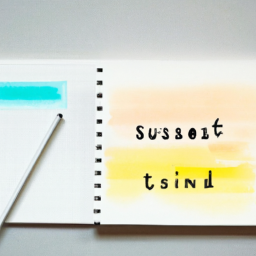 susset
tsind